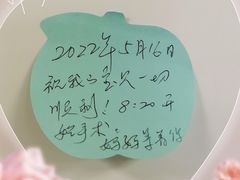 2022年5月16日
祝我的宝贝一切
顺利！8:20开
始手术。
妈妈等着你